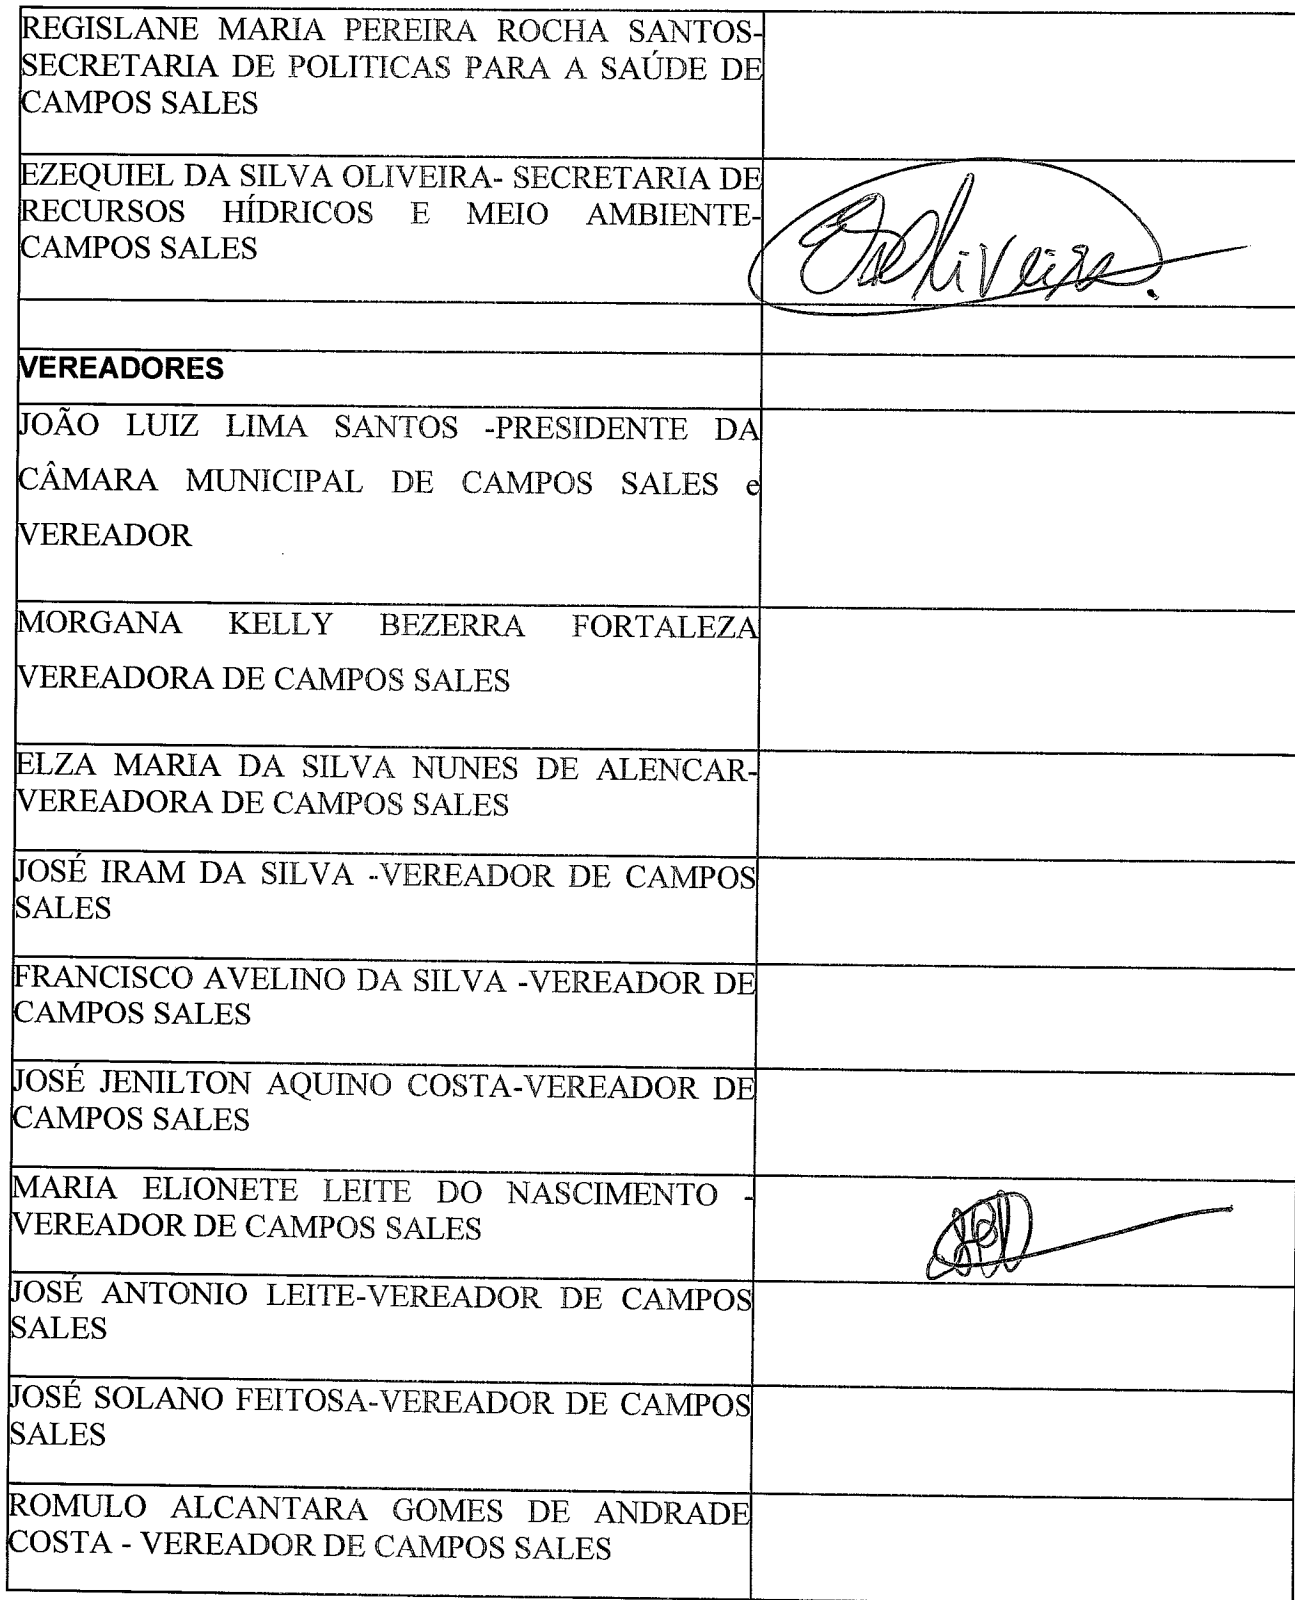 REGISLANE MARIA PEREIRA ROCHA SANTOS-
SECRETARIA DE POLITICAS PARA A SAÚDE DE
CAMPOS SALES
EZEQUIEL DA SILVA OLIVEIRA- SECRETARIA DE
RECURSOS HÍDRICOS E MEIO AMBIENTE-
CAMPOS SALES
VEREADORES
JOÃO LUIZ LIMA SANTOS -PRESIDENTE DA
CÂMARA MUNICIPAL DE CAMPOS SALES e
VEREADOR
MORGANA KELLY BEZERRA FORTALEZA
VEREADORA DE CAMPOS SALES
ELZA MARIA DA SILVA NUNES DE ALENCAR-
VEREADORA DE CAMPOS SALES
JOSÉ IRAM DA SILVA -VEREADOR DE CAMPOS
SALES
FRANCISCO AVELINO DA SILVA -VEREADOR DE
CAMPOS SALES
JOSÉ JENILTON AQUINO COSTA-VEREADOR DE
CAMPOS SALES
MARIA ELIONETE LEITE DO NASCIMENTO -
VEREADOR DE CAMPOS SALES
JOSÉ ANTONIO LEITE-VEREADOR DE CAMPOS
SALES
JOSÉ SOLANO FEITOSA-VEREADOR DE CAMPOS
SALES
ROMULO ALCANTARA GOMES DE ANDRADE
COSTA - VEREADOR DE CAMPOS SALES